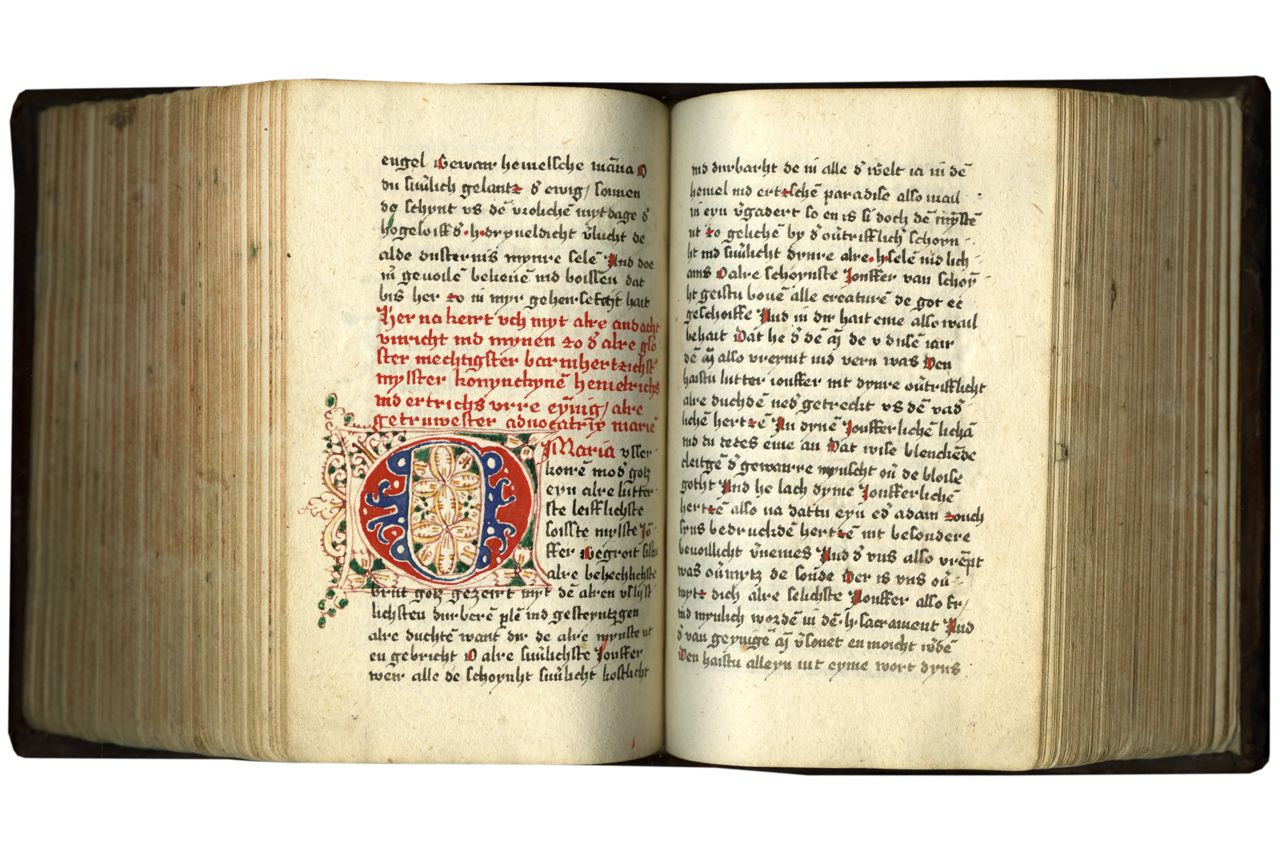 engel Gewair hemelsche māna O
du suu̅lich gelantz d' ewig/ sonnen
de schynt vs dē vrolichē mytdage d'
hogeloiffd' .h. dryueldicht v̄lucht de
alde dusternis mynre selē And doe
in̄ geuoilē bekenē ind boissen dat
bis her zo in myr gehat hait
Her na keirt vch myt alre andacht
vnricht ind mynen zo d' alre glo
ster mechtigster barmhertzichst'
mylster konynckynē hemelrichs
ind ertrichs vrre eynig/ alre
getruwester aduocatrix mariē
Maria vsser
korē mod' gotz
eyn alre lutter
ste leifflichste
soisste mylste Jō
ffer Gegroit
alre behechlichste
brut gotz gezeirt myt dē alren
lichsten durberē ind gesteyntzgen
alre duchtē want dir de alre mynste nt
en gebricht O alre suu̅lichste Jonffer
weir alle de schoynht suu̅licht kostlicht
ind durbarht de in alle d' welt ia in dē
hemel ind ertzschē paradise also wail
in eyn v̄gadert so en is si doch dē mȳstē
nt zo gelichē by d' ou̅trifflich' schoyn
ht ind suu̅licht dynre alre .h. selē ind lich
ams O alre schoynste Jonffer van schoȳ
ht geistu bouē alle creaturē de got ee
geschoiffe And in dir hait eme also wail
behait Dat he d' dē de v dusē iair
dē also vreymt ind vern was Den
haistu lutter ionffer mt dynre ou̅trifflicht
alre duchdē ned' getreckt vs dē vad'
lichē hertzē In dynē Jonfferlichē lichā
ind du dedes eme an Dat wise blenckēde
cleitgē d' gewarre mynscht ou̅ de bloise
gotht And he lach dyme Jonfferlichē
hertzē also na dattu eyn ed' adam zouch
syns bedruckdē hertzē mt besondere
beuoillicht v̄nemes And d' vns also vrēpt
was ou̅mytz de sonde Der is vns ou̅
mytz dich alre selichste Jonffer also fr/
ind mynlich wordē in dē .h. sacrament And
d' van geynigē v̄sonet en moicht w̄dē
Den haistu alleyn mt eyme wort dyns